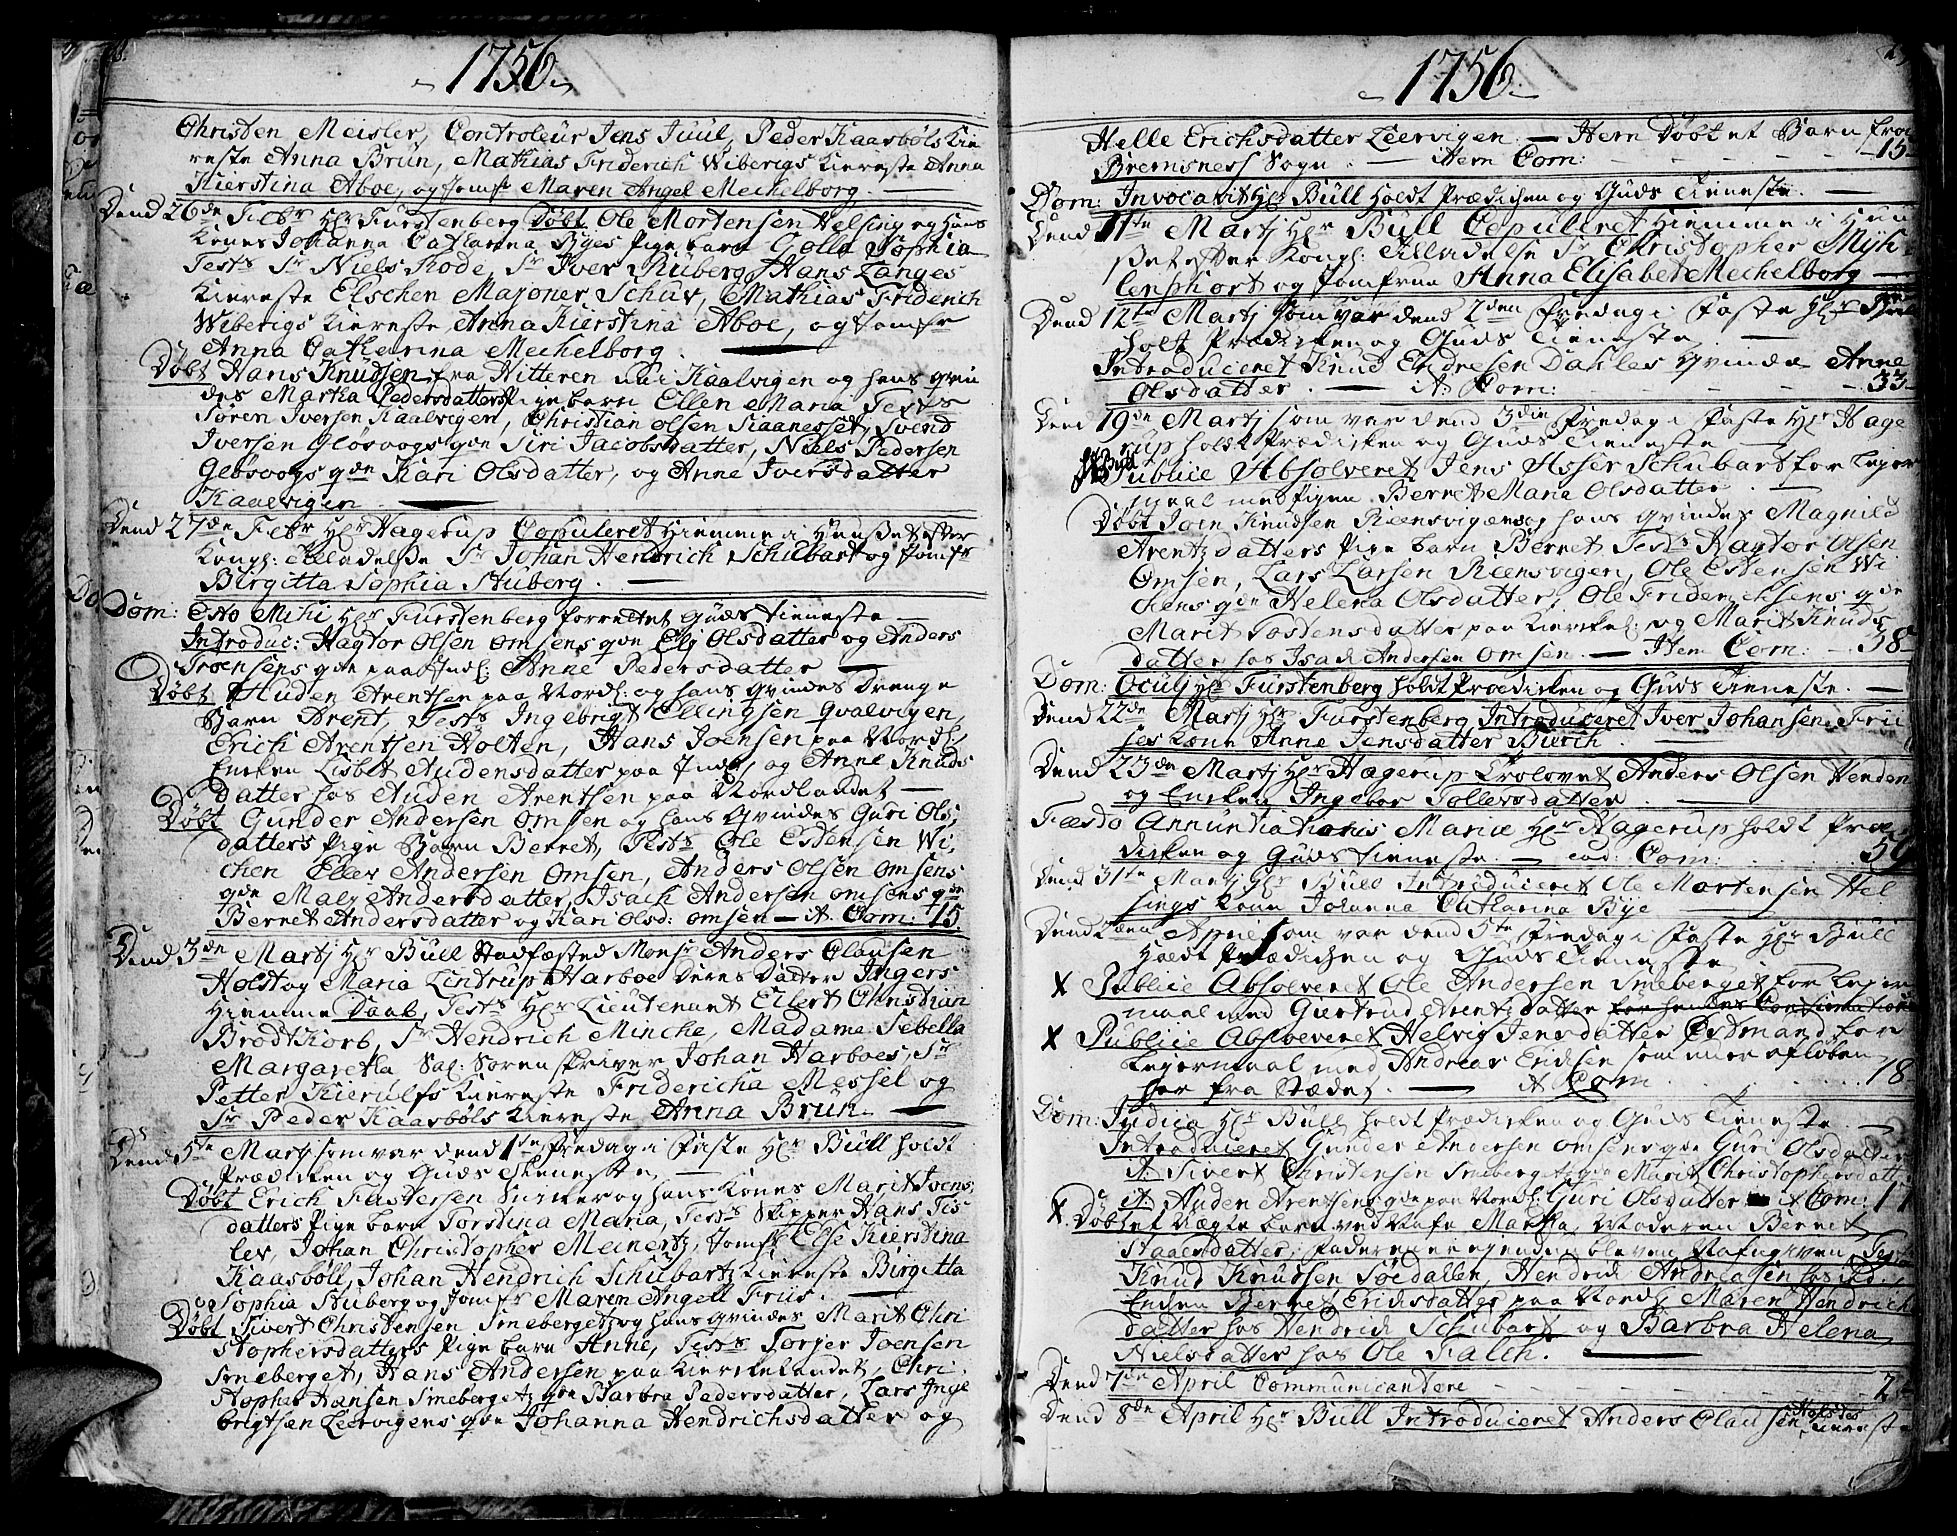 1756
Christen Meisler, Controleur Jens Juul, Peder Kaasbøls Kie
reste Anna Brün, Mathias Friderich Wiberigs Kiereste Anna
Kierstina Aboe, og Jomfr Maren Angel Mechelborg.
Dend 26de Febr Hr Furstenberg Døbt Ole Mortensen Helsing og Hans
Kones Johanna Catharina Byes Pige barn Golla Sophia
Tests Sr Niels Rode, Sr Iver Ruberg, Hans Langes
Kiereste Elschen Majoner Schur, Mathias Friderich
Weberigs Kiereste Anna Kierstina Aboe, og Jomfr
Anna Catharina Mechelborg.
Døbt Hans Knudsen fra Hitteren nu i Kaalvigen og hans qvin
des Martha Pedersdatters Pige barn Ellen Maria Tests
Søren Iversen Kaalvigen, Christian Olsen Kaanesset, Svend
Iversen Glosvogs qde Siri Jacobsdatter, Niels Pedersen
Glosvogs qde Kari Olsdatter, og Anne Iversdatter
Kaalvigen
Dend 27de Febr Hr Hagerup Copuleret Hiemme i Huuset efter
Kongl: Tilladelse Sr Johan Hendrich Schubart og Jomfr
Birgitta Sophia Stuberg.
Dom: Esto Mihi Hr Furstenberg forrettet Guds tieneste
Introduc: Hagtor Olsen Omsens qde Eli Olsdatter og Anders
Troensens qde paa Indl: Anne Pedersdatter
Døbt Auden Arentsen paa Nordl: og hans qvindes Drenge
Barn Arent, Tests Ingebrigt Ellingsen Qvalvigen,
Erich Arentsen Holten, Hans Joensen paa Nordl,
Encken Lisbet Audensdatter paa Indl, og Anne Knuds
datter hos Auden Arentsen paa Nordlandet
Døbt Gunder Andersen Omsen og hans Qvindes Guri Ols
datters Pige Barn Berret, Tests Ole Estensen Wi,
chen Eller Andersen Omsen, Anders Olsen Omsens
qde Maly Andersdatter, Isach Andersen Omsens qde
Berret Andersdatter og Kari Olsd: Omsen — it Com: 75.
Dend 3de Martj Hr Bull Stadfæsted Monsr Anders Clausen
Holst og Maria Lintrup Harboe Deres Datter Ingers
Hiemme Daab, Tests Hr Lieutenant Eilert Christian
Brodtkorb, Sr Hendrich Mincke, Madame Sebella
Margaretha Sal: Sorenskriver Johan Harboes, Sr
Petter Kierulfs Kiereste Fridericha Messel og
Sr Peder Kaasbøls Kiereste Anna Brün
Dend 5te Martj som var dend 1te Fredag i Faste Hr Bull holdt
Prædicken og Guds Tieneste,
Døbt Erich Fastersen og hans Kones Marit Joens
datters Pige barn Torstina Maria, Tests Skipper Hans Tis
lev, Johan Christopher Meinertz, Jomfr Else Kierstina
Kaasbøll, Johan Hendrich Schubartz Kiereste Birgitta
Sophia Stuberg og Jomfr Maren Angell Friis.
Døbt Sivert Christensen Smeberget og hans qvindes Marit Chri
stophersdatters Pige barn Anne, Tests Torger Joensen
Smeberget, Hans Andersen paa Kierckelandet, Chri
stopher Hansen Smeberget, qde Barbra Pedersdatter, Lars Inge
brigtsen Leervigens qde Johanna Hendrichsdatter og
1756
Helle Erichsdatter Leervigen. — Item Døbt et Barn fra
Bremsness Sogn. — Item Com: 15
Dom: Invocavit Hr Bull holdt Prædichen og Guds Tieneste.
Dend 11te Martj Hr Bull Copuleret hiemme i Huu
set efter Kongl: Tilladelse Sr Christopher Myh
lenphort og Jomfrue Anna Elisabet Mechelborg
Dend 12te Martj som var dend 2den Fredag i Faste Hr
holt Prædicken og Guds Tieneste
Introduceret Knud Endresen Dahles Qvinde Anne
Olsdatter. — it Com: 33
Dend 19de Martj som var dend 3die Fredag i Faste Hr Hage
rup holdt Prædicken og Guds Tieneste
Hr Bull
Publice Absolveret Jens Asser Schubart for Lejer
maal med Pigen Berret Maria Olsdatter.
Døbt Joen Knudsen Reensvigen og hans qvindes Magnild
Arentzdatters Pige barn Berret Tests Hagtor Olsen
Omsen, Lars Larsen Reensvigen, Ole Estensen Wi
chens qde Helena Olsdatter, Ole Friderichsens qde
Marit Tostensdatter paa Kierckel: og Marit Knuds
datter hos Isach Andersen Omsen. — Item Com: 38
Dom: Oculj Hr Furstenberg holdt Prædicken og Guds Tieneste.
Dend 22de Martj Hr Furstenberg Introduceret Iver Johansen Frii
ses Kone Anne Jensdatter Büsch.
Dend 23de Martj Hr Hagerup Trolovet Anders Olsen Venden
og Encken Ingebor Tollevsdatter
Fæsto Annuntiationis Mariæ Hr Hagerup holdt Præ
dicken og Guds tieneste — eod: Com: 59
Dend 31te Martj Hr Bull Introduceret Ole Mortensen Hel
sings Kone Johanna Catharina Bye
Dend 2den April som var dend 5te Fredag i Faste Hr Bull
holdt Prædichen og Guds Tieneste
x Publice Absolveret Ole Andersen Smeberget for Lejer
maal med Giertrud Arentzdatter for hendes Confirmation
x Publice Absolveret Helvig Jensdatter Østmand for
Lejermaal med Andreas Ericksen som er afløben
her fra Stædet. — it Com 18
Dom: Judica Hr Bull holdt Prædicken og Guds Tieneste
Introduceret Gunder Andersen Omsens qde Guri Olsdatter
it: Sivert Christensen Smeberget qde Marit Christophersdatt
it: Auden Arentsens qde paa Nordl: Guri Olsdatter it Com: 11
x Døbt et Uægte barn ved Nafn Martha, Moderen Berret
Staalesdatter, Faderen er ejendu bleven Nafngiven, Test
Knud Knudsen Søedallen, Hendrich Andreasen hos
Encken Berret Erichsdatter paa Nordl, Maren Hendrich
datter hos Hendrich Schubart og Barbra Helena
Nielsdatter hos Ole Falch.
Dend 7de April Communicantere 2
Dend 8de April Hr Bull Introduceret Anders Clausen Holstes Kiereste